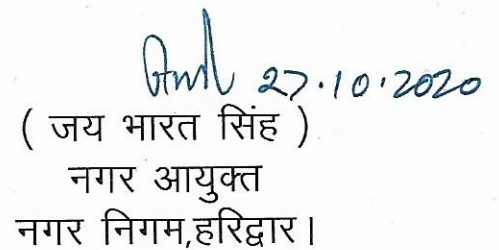 27.10.2020
( जय भारत सिंह )
नगर आयुक्त
नगर निगम,हरिद्वार।